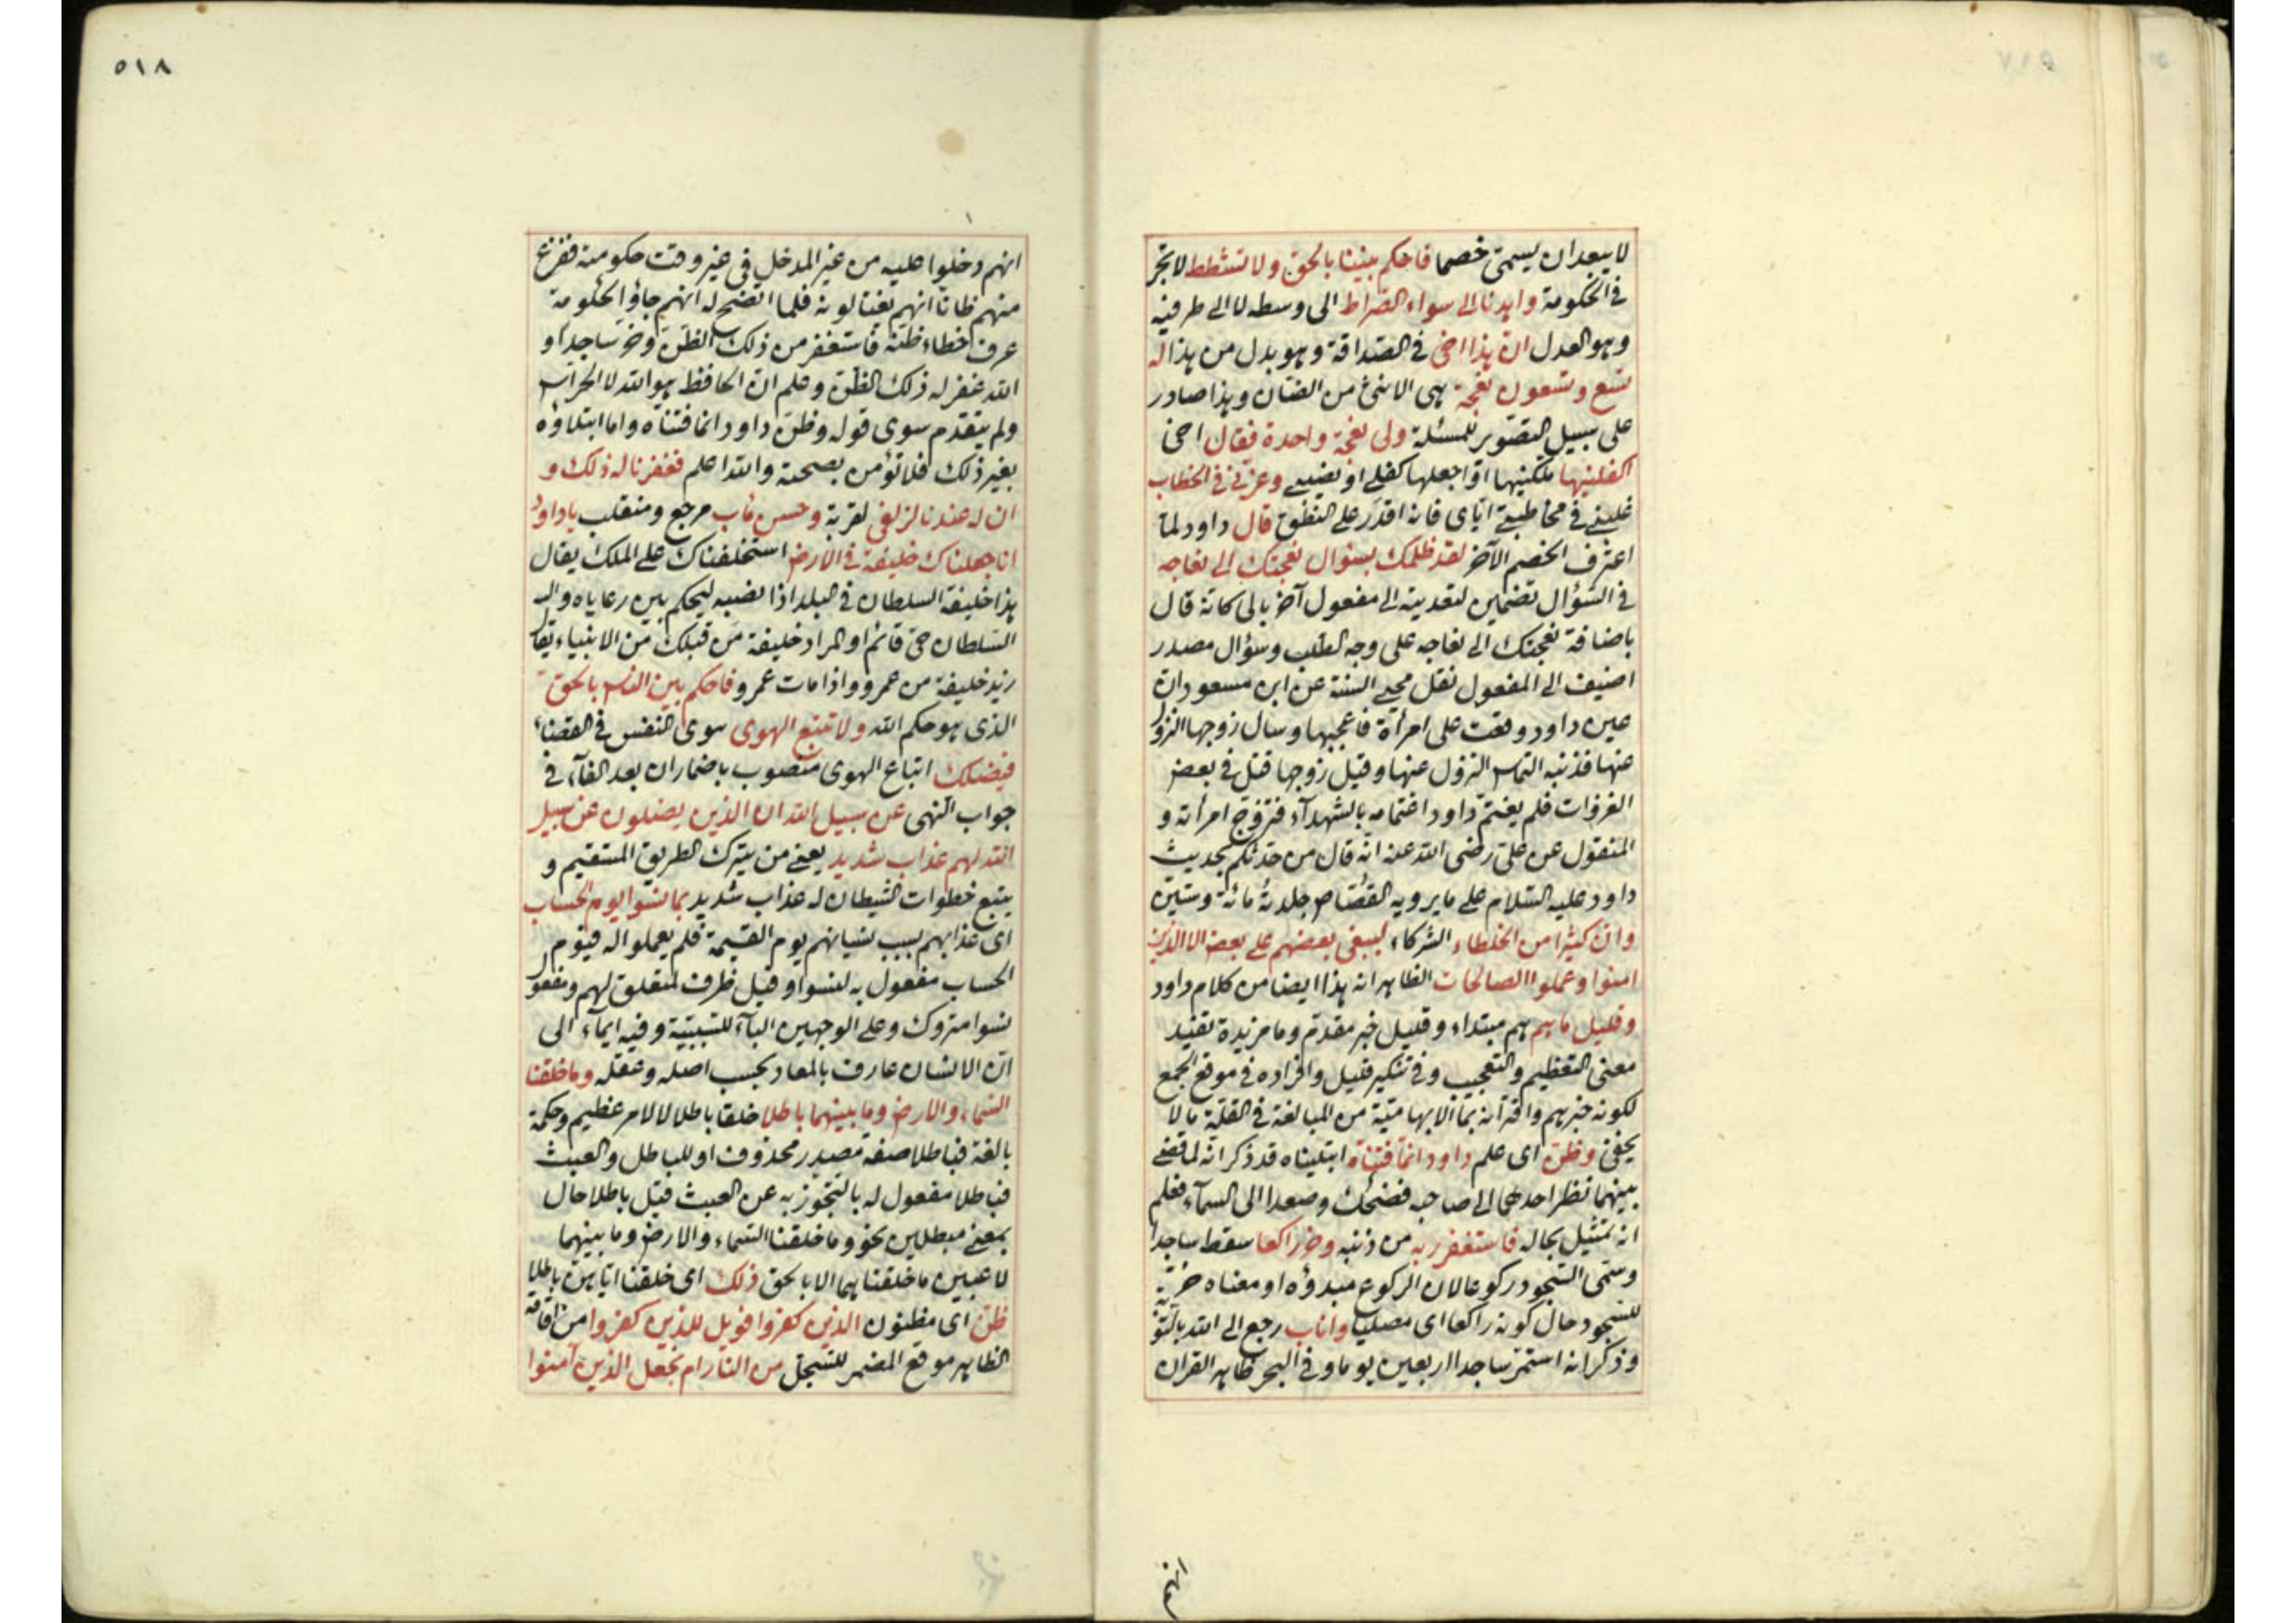 لا يبعد ان يسمى خصما فاحكم بيننا بالحق ولا تشطط لا تجر
في الحكومة واهدنا الى سواء الصراط الى وسطه لا الى طرفيه
وهو العدل ان هذا اخى في الصداقة وهو بدل من هذا له
تسع وتسعون نعجة هى الانثى من الضان وهذا صادر
على سبيل التصوير للمسئلة ولى نعجة واحدة فقال اخى
اكفلنيها ملكنيها او اجعلها كفلى او نصيبى وعزنى في الخطاب
غلبنى في مخاطبته اياى فانه اقدر على النطق قال داود لما
اعترف الخصم الآخر لقد ظلمك بسؤال نعجتك الى نعاجه
في السؤال تضمين لتعديته الى مفعول آخر بالى كانه قال
باضافة نعجتك الى نعاجه على وجه الطلب وسؤال مصدر
اضيف الى المفعول نقل محيى السنة عن ابن مسعود ان
عين داود وقعت على امرأة فاعجبها وسال زوجها النزول
عنها فذنبه التماس النزول عنها وقيل زوجها قتل في بعض
الغزوات فلم يغتم داود اغتمامه بالشهدآء فتزوج امرأته و
المنقول عن على رضى الله عنه انه قال من حدثكم بحديث
داود عليه السلام على ما يرويه القصاص جلدته مائة وستين
وان كثيرا من الخلطاء الشركاء ليبغى بعضهم على بعض الا الذين
امنوا وعملوا الصالحات الظاهر انه هذا ايضا من كلام داود
وقليل ما هم هم مبتداء وقليل خبر مقدم وما مزيدة تفيد
معنى التعظيم والتعجيب وفي تنكير قليل وافراده في موقع الجمع
لكونه خبر هم واقترانه بما الابهامية من المبالغة في القلة ما لا
يخفى وظن اى علم داود انما فتناه ابتليناه قد ذكر انه لما قضى
بينهما نظر احدهما الى صاحبه فضحك وصعدا الى السمآء فعلم
انه تمثيل بحاله فاستغفر ربه من ذنبه وخر راكعا سقط ساجدا
وسمى السجود ركوعا لان الركوع مبدؤه او معناه خر
للسجود حال كونه راكعا اى مصليا واناب رجع الى الله بالتوبة
وذكر انه استمر ساجدا اربعين يوما وفي البحر ظاهر القران
انهم
٥١٨
انهم دخلوا عليه من غير المدخل في غير وقت حكومته ففزع
منهم ظانا انهم يغتالونه فلما اتضح له انهم جاؤا لحكومة
عرف خطاء ظنه فاستغفر من ذلك الظن وخر ساجدا و
الله غفر له ذلك الظن وعلم ان الحافظ هو الله لا الحراس
ولم يتقدم سوى قوله وظن داود انما فتناه واما ابتلاؤه
بغير ذلك فلا تؤمن بصحته والله اعلم فغفرنا له ذلك و
ان له عندنا لزلفى لقربة وحسن مآب مرجع ومنقلب يا داود
انا جعلناك خليفة في الارض استخلفناك على الملك يقال
هذا خليفة السلطان في البلد اذا نصبه ليحكم بين رعاياه و
السلطان حى قائم او المراد خليفة من قبلك من الانبياء يقال
زيد خليفة من عمرو واذا مات عمرو فاحكم بين الناس بالحق
الذى هو حكم الله ولا تتبع الهوى هوى النفس في القضاء
فيضلك اتباع الهوى منصوب باضمار ان بعد الفآء في
جواب النهى عن سبيل الله ان الذين يضلون عن سبيل
الله لهم عذاب شديد يعنى من يترك الطريق المستقيم و
يتبع خطوات الشيطان له عذاب شديد بما نسوا يوم الحساب
اى عذابهم بسبب نسيانهم يوم القيمة فلم يعملوا له فيوم
الحساب مفعول به لنسوا وقيل ظرف لمتعلق لهم ومفعول
نسوا متروك وعلى الوجهين البآء للسببية وفيه ايمآء الى
ان الانسان عارف بالمعاد بحسب اصله وعقله وما خلقنا
السماء والارض وما بينهما باطلا خلقا باطلا لا لامر عظيم وحكمة
بالغة فباطلا صفة مصدر محذوف او للباطل والعبث
فباطلا مفعول له بالتجوز به عن العبث قيل باطلا حال
بمعنى مبطلين نحو وما خلقنا السماء والارض وما بينهما
لاعبين ما خلقناهما الا بالحق ذلك اى خلقنا اياهن باطلا
ظن اى مظنون الذين كفروا فويل للذين كفروا من اقامة
الظاهر موقع المضمر للتسجيل من النار ام نجعل الذين آمنوا